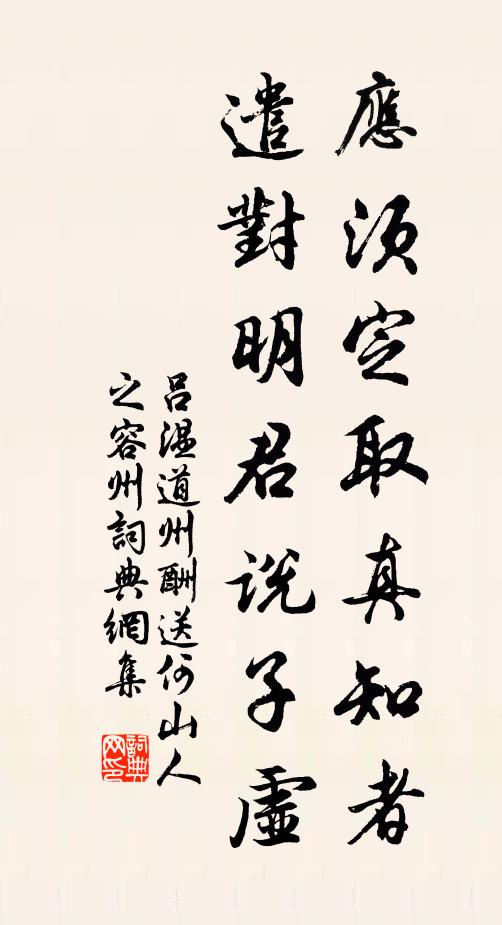 應須定取真知者
遣對明君說子虛
呂溫道州酬送何山人
之容州詞典網集
詞典
网印